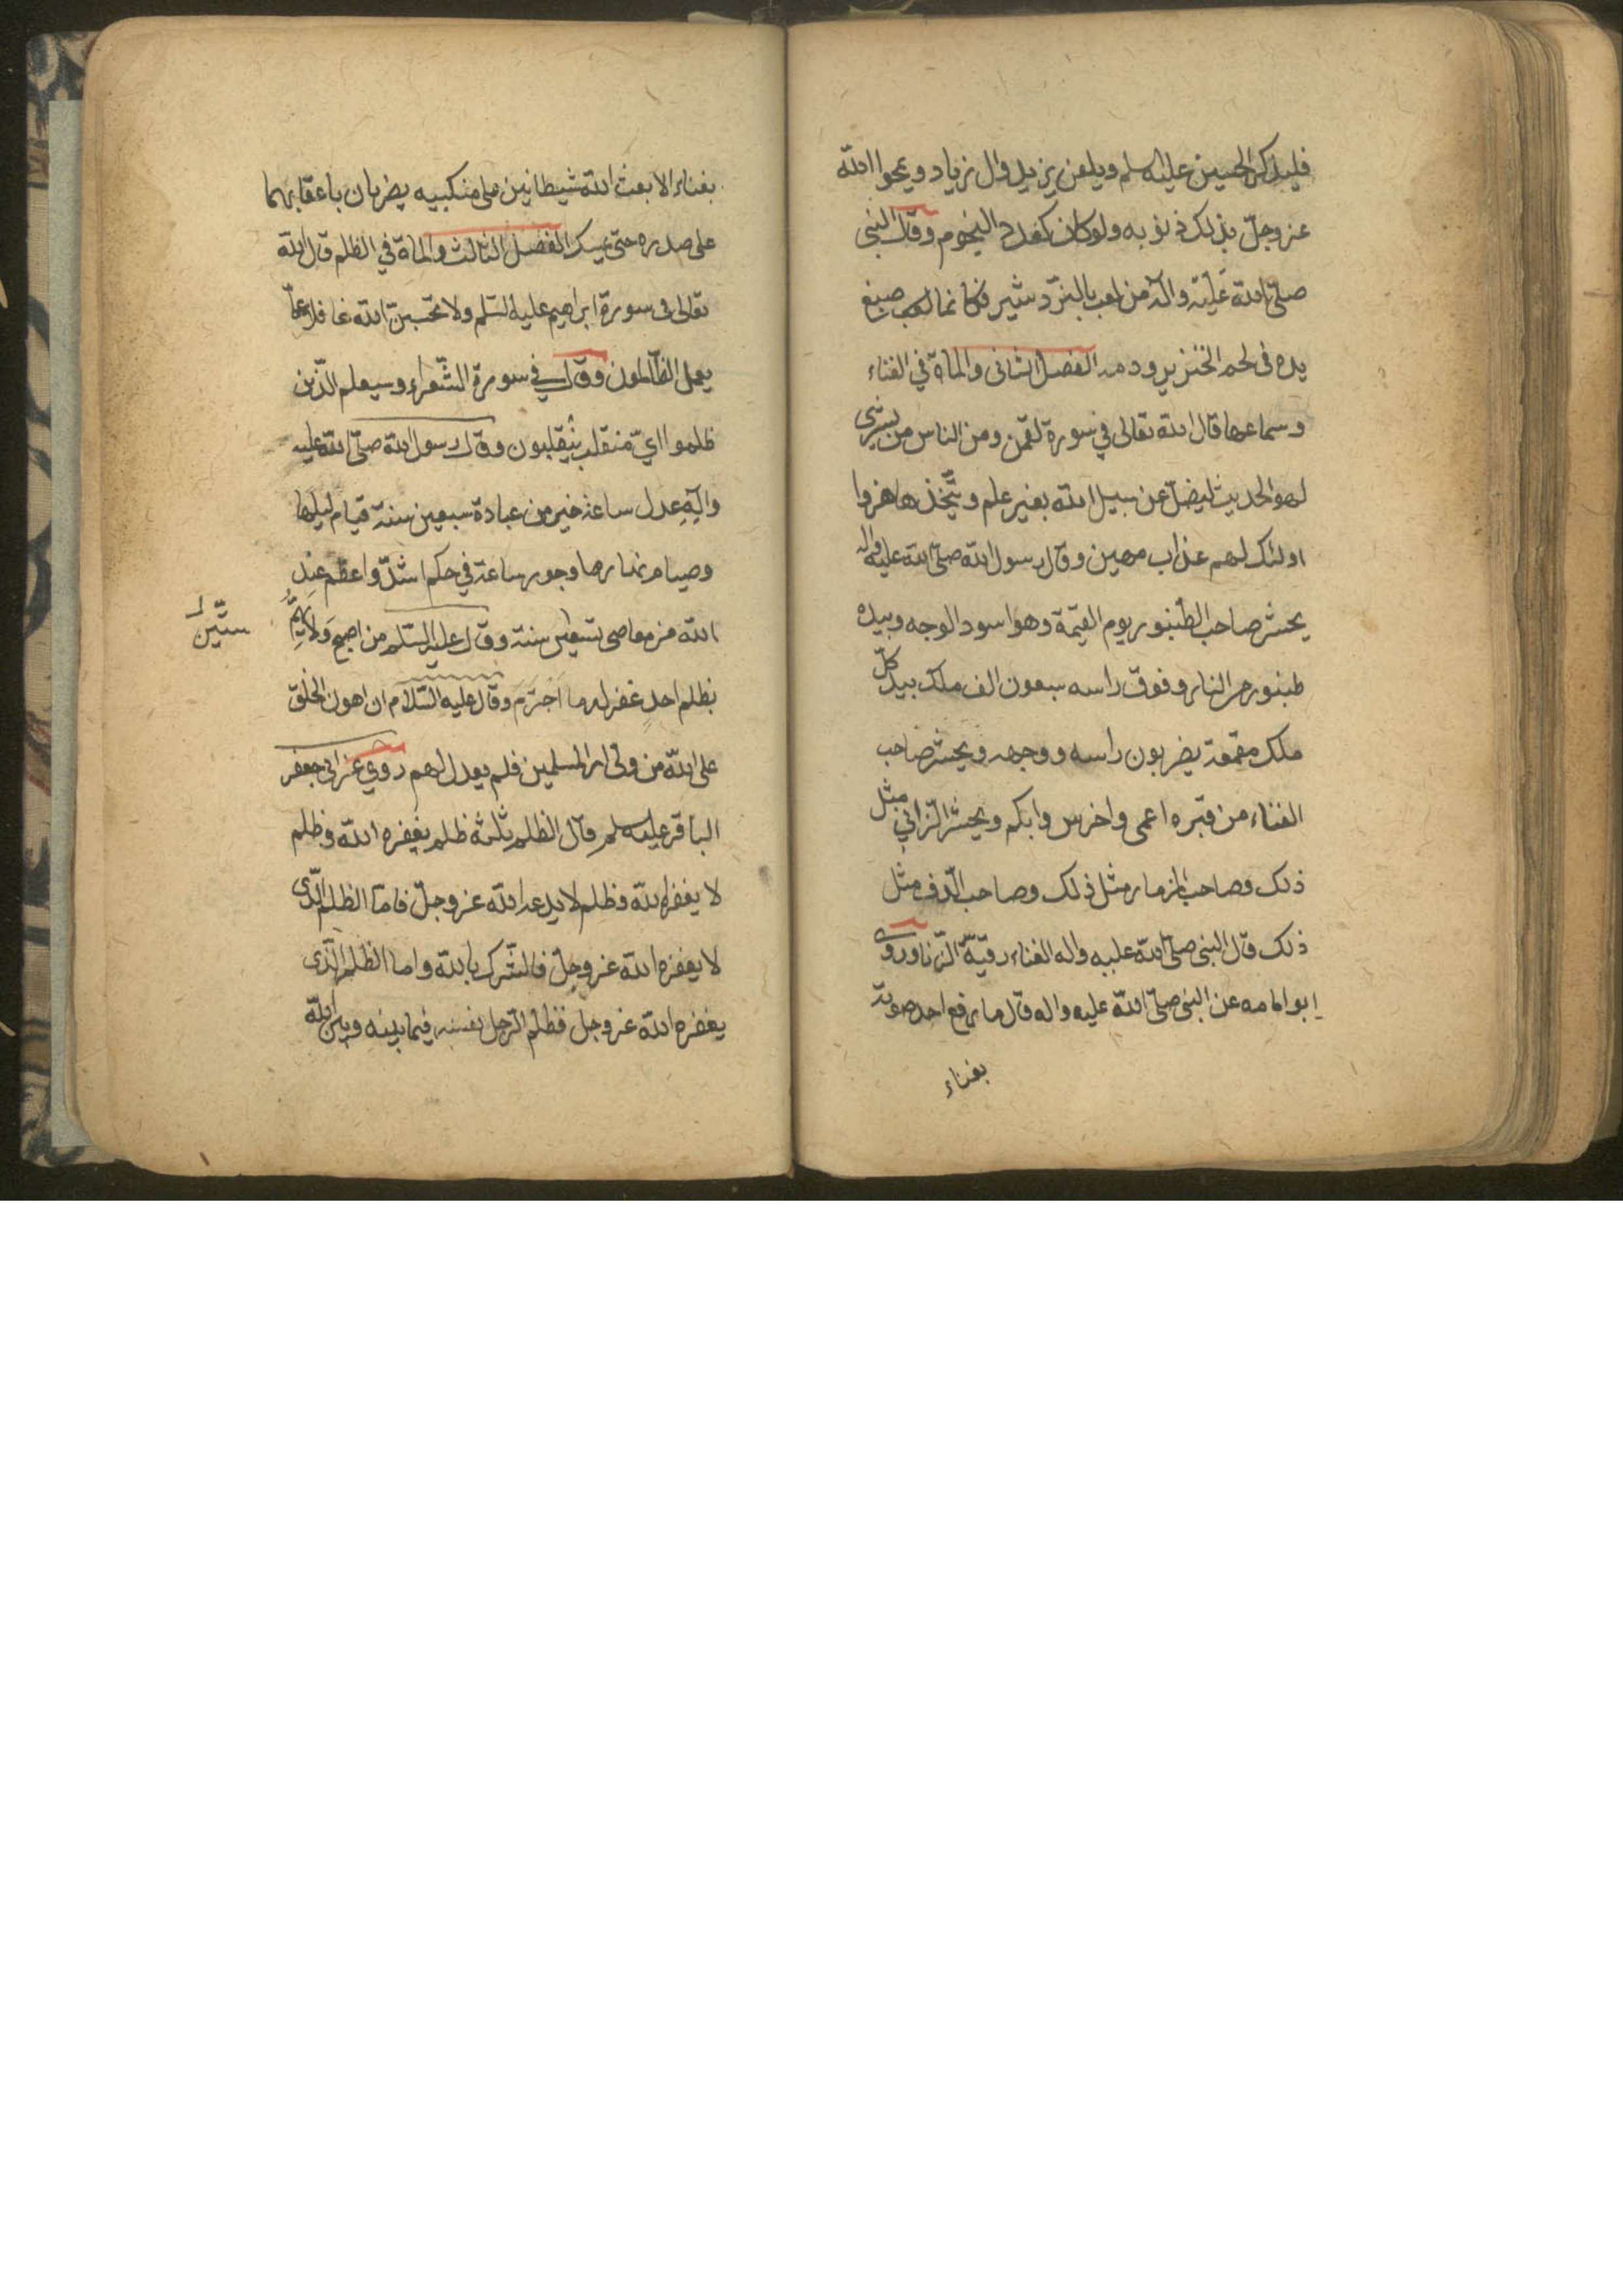 فليذكر الحسين عليه السلم ويلعن يزيد وال زياد ويمحوا الله
عز وجل بذلك ذنوبه ولو كان كعدد النجوم وقال النبي
صلى الله عليه واله من لعب بالنرد شير فكانما لعب صبغ
يده فى لحم الخنزير ودمه الفصل الثانى والمائة في الغناء
وسماعها قال الله تعالى في سورة لقمن ومن الناس من يشترى
لهو الحديث ليضل عن سبيل الله بغير علم ويتخذها هزوا
اولئك لهم عذاب مهين وقال رسول الله صلى الله عليه واله
يحشر صاحب الطنبور يوم القيمة وهو اسود الوجه وبيده
طنبور من النار وفوق راسه سبعون الف ملك بيد كل
ملك مقمعة يضربون راسه ووجهه ويحشر صاحب
الغناء من قبره اعمى واخرس وابكم ويحشر الزاني مثل
ذلك وصاحب المزمار مثل ذلك وصاحب الدف مثل
ذلك قال النبى صلى الله عليه واله الغناء رقية الزنا وروى
ابو امامه عن النبى صلى الله عليه واله قال ما رفع احد صوته
بغناء
بغناء الا بعث الله شيطانين على منكبيه يضربان باعقابهما
على صدره حتى يمسك الفصل الثالث والمائة في الظلم قال الله
تعالى فى سورة ابراهيم عليه السلم ولا تحسبن الله غافلا عما
يعمل الظالمون وقال في سورة الشعراء وسيعلم الذين
ظلموا اي منقلب ينقلبون وقال رسول الله صلى الله عليه
واله عدل ساعة خير من عبادة سبعين سنة قيام ليلها
وصيام نهارها وجور ساعة في حكم اشد واعظم عند
الله من معاصى تسعين سنة وقال عليه السلم من اصبح ولا يهم
ستين
بظلم احد غفر له ما اجترم وقال عليه السلام ان اهون الخلق
على الله من ولى امر المسلمين فلم يعدل لهم روي عن ابى جعفر
الباقر عليه السلم قال الظلم ثلثة ظلم يغفره الله وظلم
لا يغفره الله وظلم لا يدعه الله عز وجل فاما الظلم الذى
لا يغفره الله عز وجل فالشرك بالله واما الظلم الذى
يغفره الله عز وجل فظلم الرجل نفسه فيما بينه وبين الله